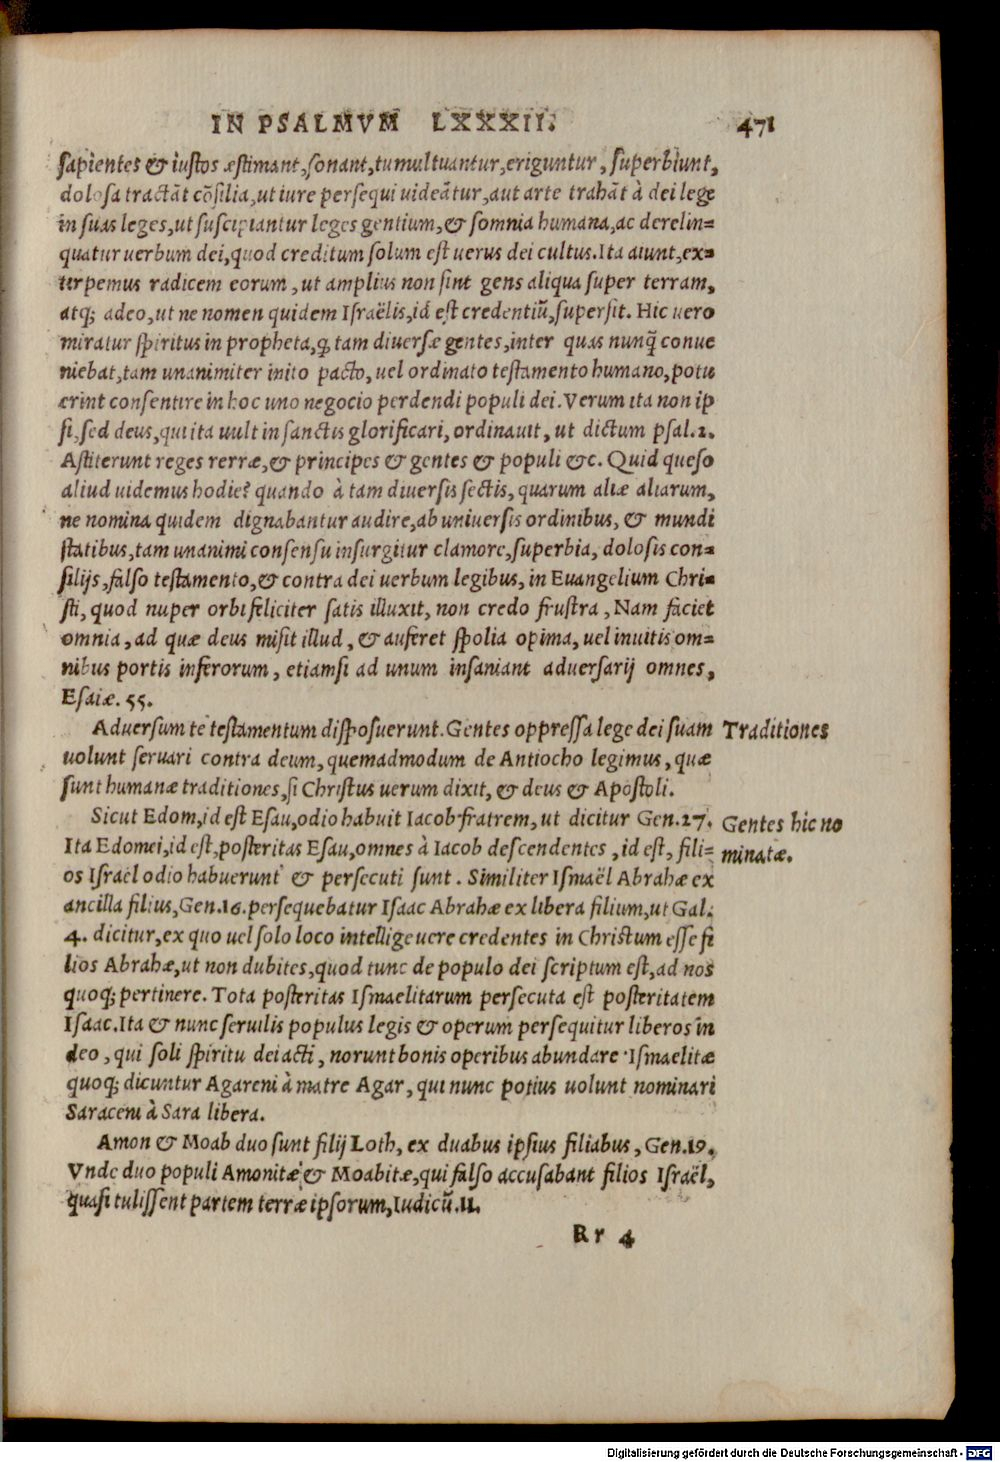 IN PSALMVM LXXXII. 471
sapientes & iustos æstimant, sonant, tumultuantur, eriguntur, superbiunt,
dolosa tractāt cōsilia, ut iure persequi uideātur, aut arte trahāt à dei lege
in suas leges, ut suscipiantur leges gentium, & somnia humana, ac derelin=
quatur uerbum dei, quod creditum solum est uerus dei cultus. Ita aiunt, ex=
tirpemus radicem eorum, ut amplius non sint gens aliqua super terram,
atq; adeo, ut ne nomen quidem Israëlis, id est credentiū, supersit. Hic uero
miratur spiritus in propheta, q̨ tam diuersæ gentes, inter quas nunq̄ conue
niebat, tam unanimiter inito pacto, uel ordinato testamento humano, potu
erint consentire in hoc uno negocio perdendi populi dei. Verum ita non ip
si, sed deus, qui ita uult in sanctis glorificari, ordinauit, ut dictum psal. 2.
Astiterunt reges rerræ, & principes & gentes & populi &c. Quid queso
aliud uidemus hodie? quando à tam diuersis sectis, quarum aliæ aliarum,
ne nomina quidem dignabantur audire, ab uniuersis ordinibus, & mundi
statibus, tam unanimi consensu insurgitur clamore, superbia, dolosis con=
silijs, falso testamento, & contra dei uerbum legibus, in Euangelium Chri=
sti, quod nuper orbi feliciter satis illuxit, non credo frustra, Nam faciet
omnia, ad quæ deus misit illud, & auferet spolia opima, uel inuitis om=
nibus portis inferorum, etiamsi ad unum insaniant aduersarij omnes,
Esaiæ. 55.
Aduersum te testamentum disposuerunt. Gentes oppressa lege dei suam
Traditiones
uolunt seruari contra deum, quemadmodum de Antiocho legimus, quæ
sunt humanæ traditiones, si Christus uerum dixit, & deus & Apostoli.
Sicut Edom, id est Esau, odio habuit Iacob fratrem, ut dicitur Gen. 27.
Gentes hic no
Ita Edomei, id est, posteritas Esau, omnes à Iacob descendentes, id est, fili=
minatæ.
os Israël odio habuerunt & persecuti sunt. Similiter Ismaël Abrahæ ex
ancilla filius, Gen. 16. persequebatur Isaac Abrahæ ex libera filium, ut Gal.
4. dicitur, ex quo uel solo loco intellige uere credentes in Christum esse fi
lios Abrahæ, ut non dubites, quod tunc de populo dei scriptum est, ad nos
quoq; pertinere. Tota posteritas Ismaelitarum persecuta est posteritatem
Isaac. Ita & nunc seruilis populus legis & operum persequitur liberos in
deo, qui soli spiritu dei acti, norunt bonis operibus abundare. Ismaelitæ
quoq; dicuntur Agareni à matre Agar, qui nunc potius uolunt nominari
Saraceni à Sara libera.
Amon & Moab duo sunt filij Loth, ex duabus ipsius filiabus, Gen. 19.
Vnde duo populi Amonitæ & Moabitæ, qui falso accusabant filios Israël,
quasi tulissent partem terræ ipsorum, Iudicū. 11.
Rr 4
Digitalisierung gefördert durch die Deutsche Forschungsgemeinschaft - DFG